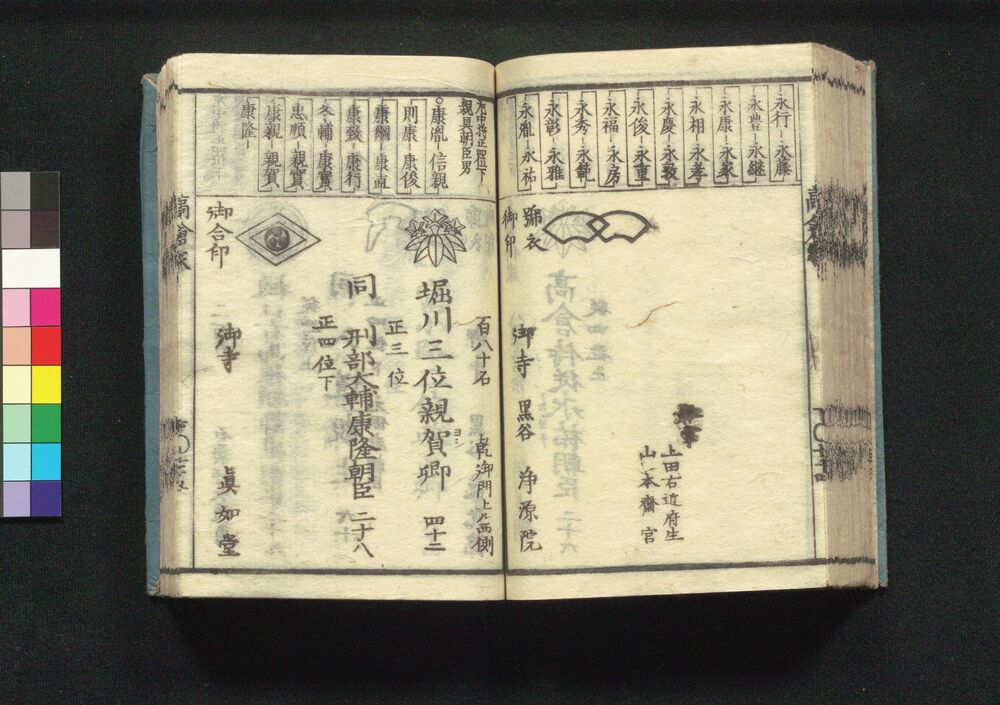 永行-永藤
永豊-永継
永康-永家
永相-永孝
永慶-永敦
永俊-永重
永福-永房
永秀-永範
永彰-永雅
永胤-永祐
雑掌
上田右近府生
山本齋宮
號衣
御印
御寺 黒谷 浄源院
左中将正四位下
親具朝臣男
○康胤-信親
則康-康俊
康綱-康直
康致-康行
冬輔-康實
忠順-親實
康親-親賀
康隆-
百八十石 乾御門上ル西側
堀川三位親賀卿 四十二
ヨシ
正三位
同 刑部大輔康隆朝臣 二十八
正四位下
御合印
御寺 眞如堂
高倉家